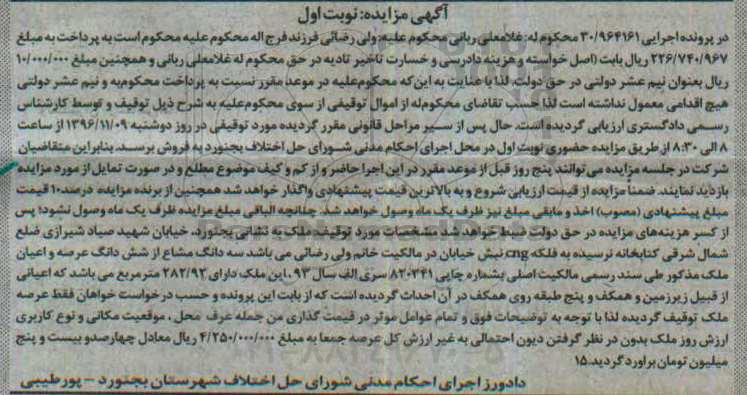 آگهی مزایده: نوبت اول
در پرونده اجرایی ۳۰/۹۶۴۱۶۱ محکوم له: غلامعلی ربانی محکوم علیه: ولی رضائی فرزند فرج اله محکوم علیه محکوم است به پرداخت به مبلغ
۲۲۶/۷۴۰/۹۶۷ ریال بابت (اصل خواسته و هزینه دادرسی و خسارت تاخیر تادیه در حق محکوم له غلامعلی ربانی و همچنین مبلغ ۱۰/۰۰۰/۰۰۰
ریال بعنوان نیم عشر دولتی در حق دولت، لذا با عنایت به این که محکوم‌علیه در موعد مقرر نسبت به پرداخت محکوم‌به و نیم عشر دولتی
هیچ اقدامی معمول نداشته است لذا حسب تقاضای محکوم‌له از اموال توقیفی از سوی محکوم‌علیه به شرح ذیل توقیف و توسط کارشناس
رسمی دادگستری ارزیابی گردیده است. حال پس از سیر مراحل قانونی مقرر گردیده مورد توقیفی در روز دوشنبه ۱۳۹۶/۱۱/۰۹ از ساعت
۸ الی ۸:۳۰ از طریق مزایده حضوری نوبت اول در محل اجرای احکام مدنی شورای حل اختلاف بجنورد به فروش برسد. بنابراین متقاضیان
شرکت در جلسه مزایده می‌توانند پنج روز قبل از موعد مقرر در این اجرا حاضر و از کم و کیف موضوع مطلع و در صورت تمایل از مورد مزایده
بازدید نمایند. ضمناً مزایده از قیمت ارزیابی شروع و به بالاترین قیمت پیشنهادی واگذار خواهد شد همچنین از برنده مزایده درصد۱۰ قیمت
مبلغ پیشنهادی (مصوب) اخذ و مابقی مبلغ نیز ظرف یک ماه وصول خواهد شد. چنانچه الباقی مبلغ مزایده ظرف یک ماه وصول نشود؛ پس
از کسر هزینه‌های مزایده در حق دولت ضبط خواهد شد مشخصات مورد توقیف: ملک به نشانی بجنورد، خیابان شهید صیاد شیرازی ضلع
شمال شرقی کتابخانه نرسیده به فلکه cng نبش خیابان در مالکیت خانم ولی رضائی می باشد سه دانگ مشاع از شش دانگ عرصه و اعیان
ملک مذکور طی سند رسمی مالکیت اصلی بشماره چاپی ۸۲۰۳۴۱ سری الف سال ۹۳، این ملک دارای ۲۸۲/۹۲ مترمربع می باشد که اعیانی
از قبیل زیرزمین و همکف و پنج طبقه روی همکف در آن احداث گردیده است که از بابت این پرونده و حسب درخواست خواهان فقط عرصه
ملک توقیف گردیده لذا با توجه به توضیحات فوق و تمام عوامل موثر در قیمت گذاری من جمله عرف محل، موقعیت مکانی و نوع کاربری
ارزش روز ملک بدون در نظر گرفتن دیون احتمالی به غیر ارزش کل عرصه جمعا به مبلغ ۴/۲۵۰/۰۰۰/۰۰۰ ریال معادل چهارصدو بیست و پنج
میلیون تومان براورد گردید. ۱۵
دادورز اجرای احکام مدنی شورای حل اختلاف شهرستان بجنورد – پورطیبی